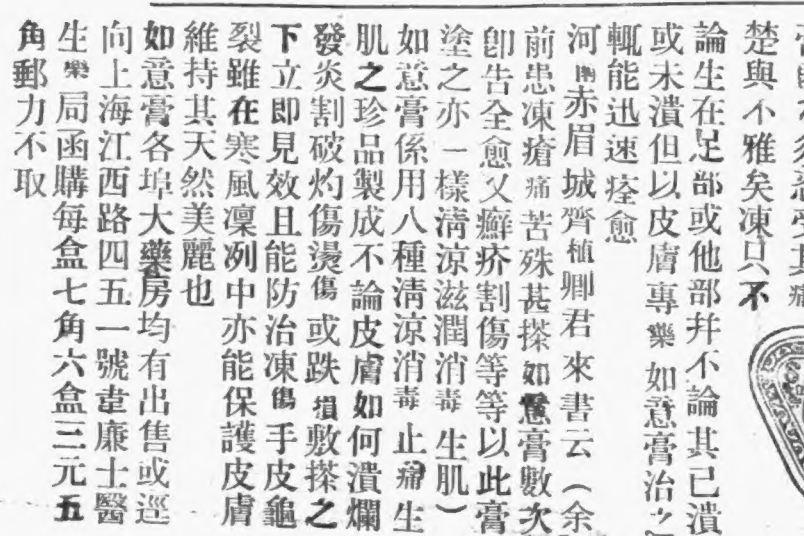 楚與不雅矣凍只不
論生在足部或他部幷不論其已潰
或未潰但以皮膚專藥如意膏治之
輒能迅速痊愈
河南赤眉城齊植卿君來書云（余
前患凍瘡痛苦殊甚搽如意膏數次
卽告全愈又癬疥割傷等等以此膏
塗之亦一樣淸涼滋潤消毒生肌）
如意膏係用八種淸涼消毒止痛生
肌之珍品製成不論皮膚如何潰爛
發炎割破灼傷燙傷或跌損敷搽之
下立卽見效且能防治凍傷手皮龜
裂雖在寒風凜冽中亦能保護皮膚
維持其天然美麗也
如意膏各埠大藥房均有出售或逕
向上海江西路四五一號韋廉士醫
生藥局函購每盒七角六盒三元五
角郵力不取